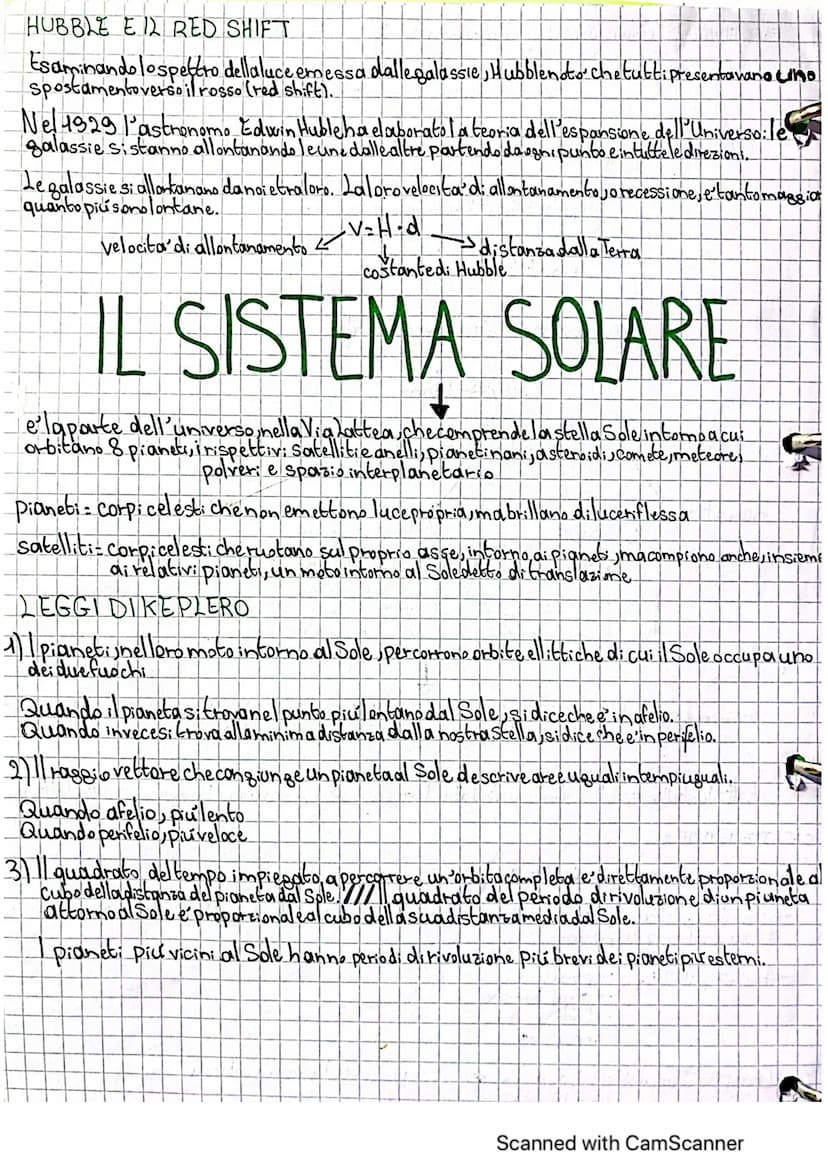 HUBBLE E IL RED SHIFT
Esaminando lo spettro della luce emessa dalle galassie, Hubble notò che tutti presentavano uno
spostamento verso il rosso (red shift).
Nel 1929 l'astronomo Edwin Hubble ha elaborato la teoria dell'espansione dell'Universo: le
galassie si stanno allontanando le une dalle altre partendo da ogni punto e in tutte le direzioni.
Le galassie si allontanano da noi e tra loro. La loro velocità di allontanamento, o recessione, è tanto maggior
quanto più sono lontane.
V=H·d
velocità di allontanamento
distanza dalla Terra
costante di Hubble
IL SISTEMA SOLARE
è la parte dell'universo, nella Via Lattea, che comprende la stella Sole intorno a cui
orbitano 8 pianeti, i rispettivi satelliti e anelli, pianeti nani, asteroidi, comete, meteore,
polveri e spazio interplanetario
pianeti = corpi celesti che non emettono luce propria, ma brillano di luce riflessa
satelliti = corpi celesti che ruotano sul proprio asse, intorno ai pianeti, ma compiono anche, insieme
ai relativi pianeti, un moto intorno al Sole detto di translazione
LEGGI DI KEPLERO
1) I pianeti, nel loro moto intorno al Sole, percorrono orbite ellittiche di cui il Sole occupa uno
dei due fuochi
Quando il pianeta si trova nel punto più lontano dal Sole, si dice che è in afelio.
Quando invece si trova alla minima distanza dalla nostra stella, si dice che è in perifelio.
2) Il raggio vettore che congiunge un pianeta al Sole descrive aree uguali in tempi uguali.
Quando afelio, più lento
Quando perifelio, più veloce
3) Il quadrato del tempo impiegato a percorrere un'orbita completa è direttamente proporzionale al
cubo della distanza del pianeta dal Sole. //// Il quadrato del periodo di rivoluzione di un piuneta
attorno al Sole è proporzionale al cubo della sua distanza media dal Sole.
I pianeti più vicini al Sole hanno periodi di rivoluzione più brevi dei pianeti più esterni.
Scanned with CamScanner